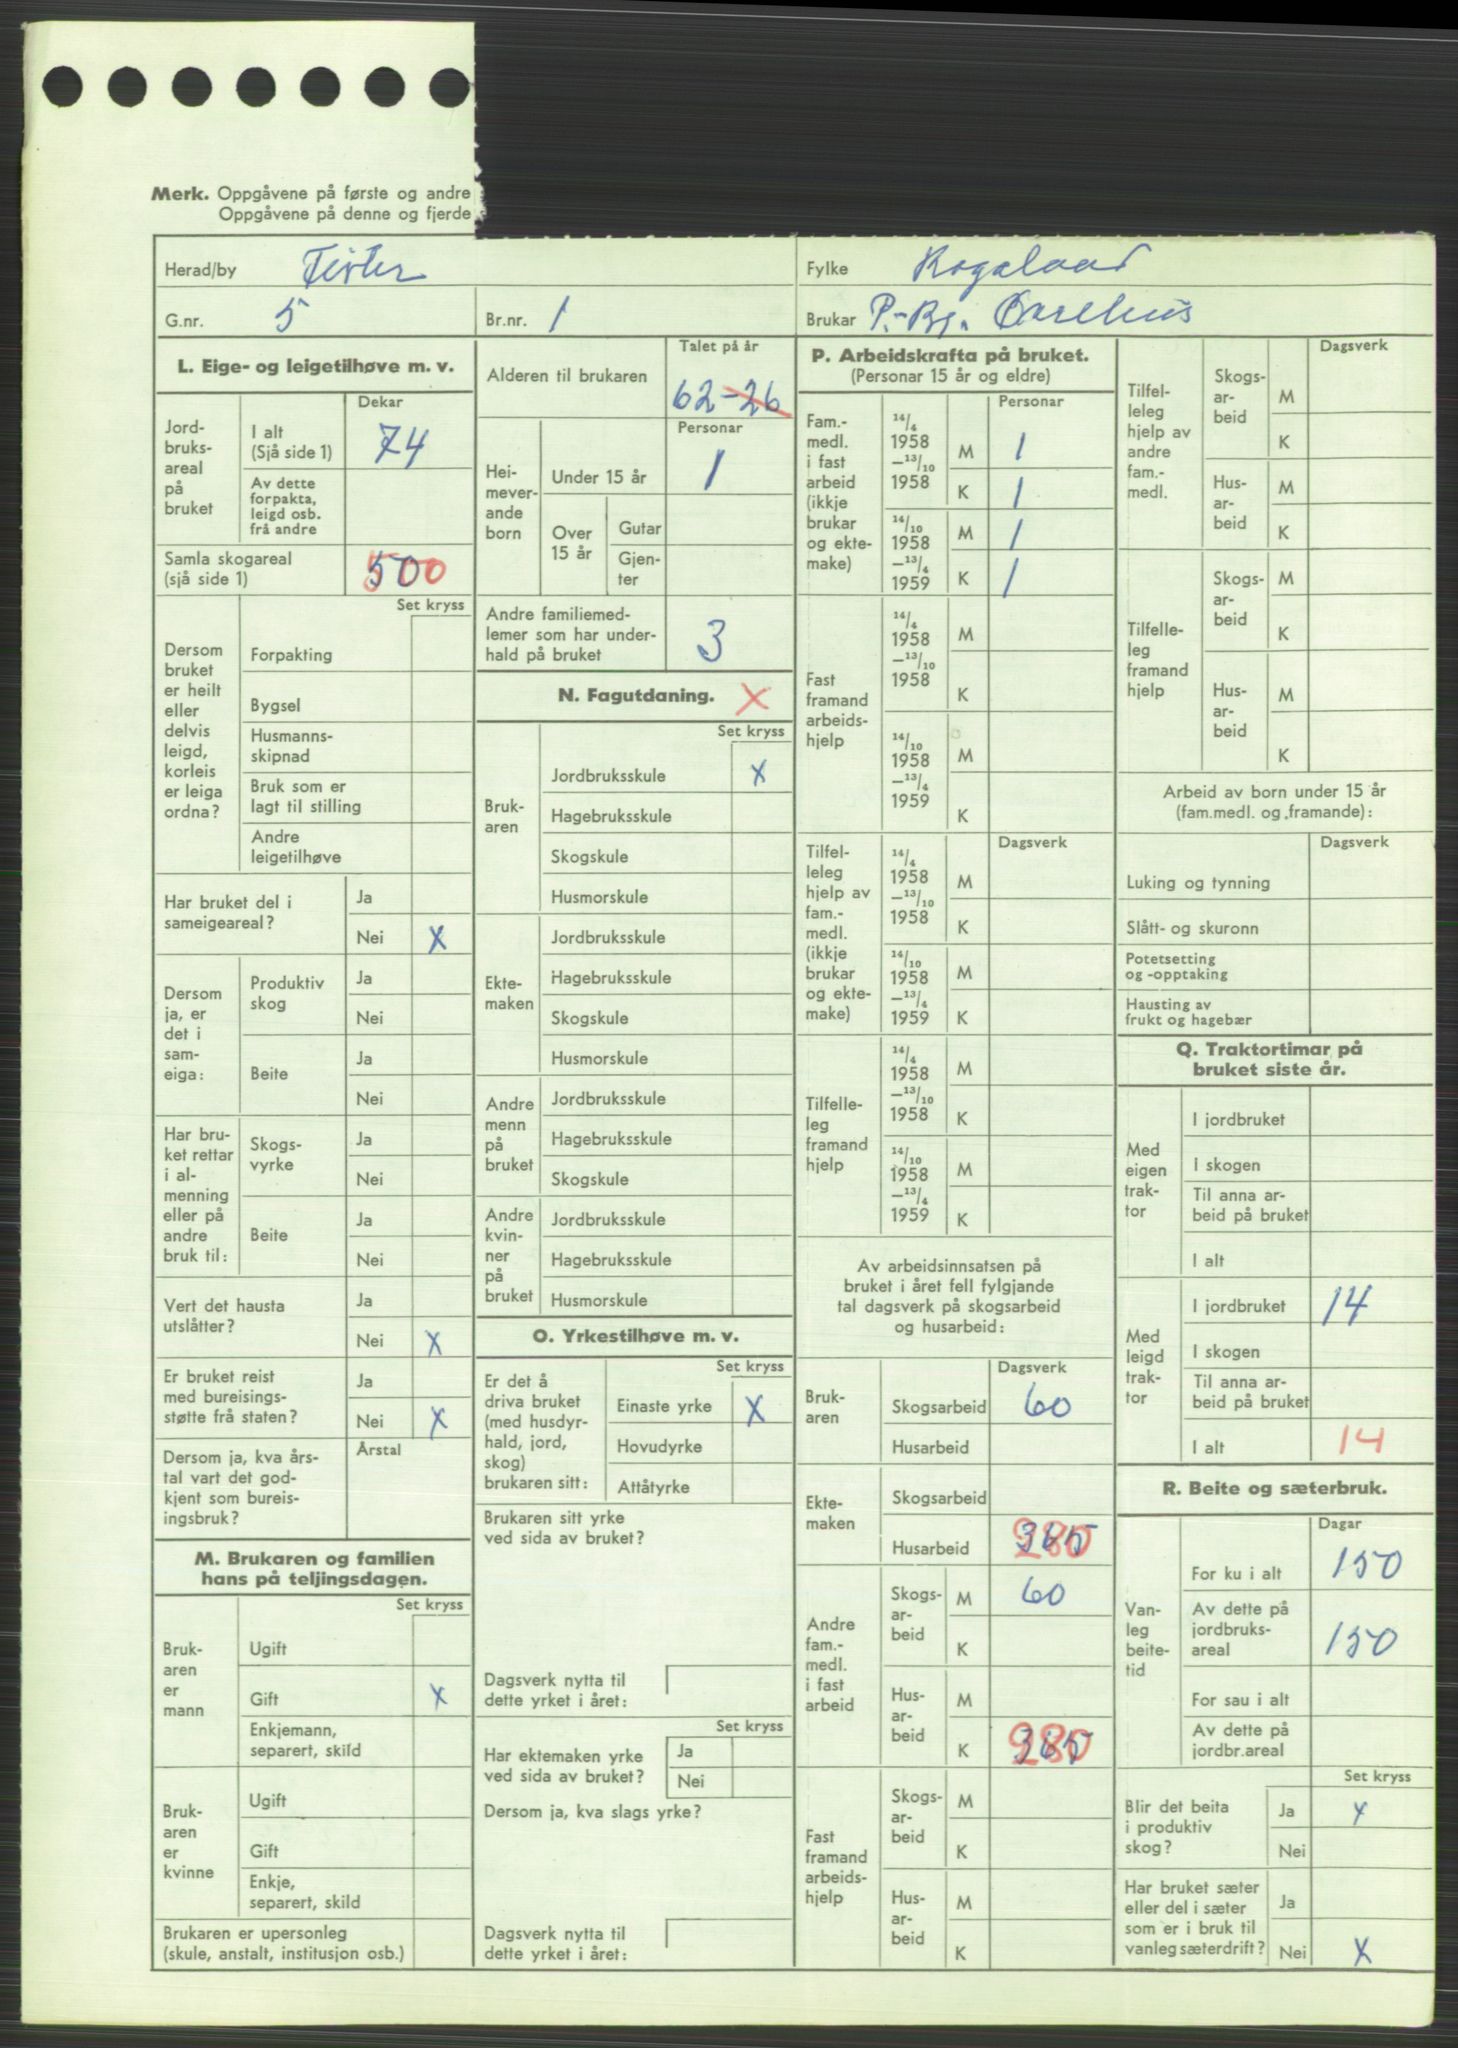 Merk. Oppgåvene på første og andre
Oppgåvene på denne og fjerde
Herad/by Fister
Fylke Rogaland
G.nr. 5
Br.nr. 1
Brukar P.-Bj.
L. Eige- og leigetilhøve m. v.
Dekar
Jord-
bruks-
areal
på
bruket
I alt
(Sjå side 1) 74
Av dette
forpakta,
leigd osb.
frå andre
Samla skogareal
(sjå side 1) 500
Set kryss
Dersom
bruket
er heilt
eller
delvis
leigd,
korleis
er leiga
ordna?
Forpakting
Bygsel
Husmanns-
skipnad
Bruk som er
lagt til stilling
Andre
leigetilhøve
Har bruket del i
sameigeareal?
Ja
Nei X
Dersom
ja, er
det i
sam-
eiga:
Produktiv
skog
Ja
Nei
Beite
Ja
Nei
Har bru-
ket rettar
i al-
menning
eller på
andre
bruk til:
Skogs-
vyrke
Ja
Nei
Beite
Ja
Nei
Vert det hausta
utslåtter?
Ja
Nei X
Er bruket reist
med bureisings-
støtte frå staten?
Ja
Nei X
Dersom ja, kva års-
tal vart det god-
kjent som bureis-
ingsbruk?
Årstal
M. Brukaren og familien
hans på teljingsdagen.
Set kryss
Bruk-
aren
er
mann
Ugift
Gift X
Enkjemann,
separert, skild
Bruk-
aren
er
kvinne
Ugift
Gift
Enkje,
separert, skild
Brukaren er upersonleg
(skule, anstalt, institusjon osb.)
Talet på år
Alderen til brukaren 62-26
Personar
Hei-
mever-
ande
born
Under 15 år 1
Over
15 år
Gutar
Gjen-
ter
Andre familiemed-
lemer som har under-
hald på bruket 3
N. Fagutdaning. X
Set kryss
Bruk-
aren
Jordbruksskule X
Hagebruksskule
Skogskule
Husmorskule
Ekte-
maken
Jordbruksskule
Hagebruksskule
Skogskule
Husmorskule
Andre
menn
på
bruket
Jordbruksskule
Hagebruksskule
Skogskule
Andre
kvin-
ner
på
bruket
Jordbruksskule
Hagebruksskule
Husmorskule
O. Yrkestilhøve m. v.
Set kryss
Er det å
driva bruket
(med husdyr-
hald, jord,
skog)
brukaren sitt:
Einaste yrke X
Hovudyrke
Attåtyrke
Brukaren sitt yrke
ved sida av bruket?
Dagsverk nytta til
dette yrket i året:
Set kryss
Har ektemaken yrke
ved sida av bruket?
Ja
Nei
Dersom ja, kva slags yrke?
Dagsverk nytta til
dette yrket i året:
P. Arbeidskrafta på bruket.
(Personar 15 år og eldre)
Personar
Fam.-
medl.
i fast
arbeid
(ikkje
brukar
og ekte-
make)
14/4
1958
—13/10
1958
M 1
K 1
14/10
1958
—13/4
1959
M 1
K 1
Fast
framand
arbeids-
hjelp
14/4
1958
—13/10
1958
M
K
14/10
1958
—13/4
1959
M
K
Dagsverk
Tilfel-
leleg
hjelp av
fam.-
medl.
(ikkje
brukar
og ekte-
make)
14/4
1958
—13/10
1958
M
K
14/10
1958
—13/4
1959
M
K
Tilfelle-
leg
framand
hjelp
14/4
1958
—13/10
1958
M
K
14/10
1958
—13/4
1959
M
K
Av arbeidsinnsatsen på
bruket i året fell fylgjande
tal dagsverk på skogsarbeid
og husarbeid:
Dagsverk
Bruk-
aren
Skogsarbeid 60
Husarbeid
Ekte-
maken
Skogsarbeid
Husarbeid 365 280
Andre
fam.-
medl.
i fast
arbeid
Skogs-
ar-
beid
M 60
K
Hus-
ar-
beid
M
K 365 280
Fast
framand
arbeids-
hjelp
Skogs-
ar-
beid
M
K
Hus-
ar-
beid
M
K
Dagsverk
Tilfel-
leleg
hjelp av
andre
fam.-
medl.
Skogs-
ar-
beid
M
K
Hus-
ar-
beid
M
K
Tilfelle-
leg
framand
hjelp
Skogs-
ar-
beid
M
K
Hus-
ar-
beid
M
K
Arbeid av born under 15 år
(fam.medl. og framande):
Dagsverk
Luking og tynning
Slått- og skuronn
Potetsetting
og -opptaking
Hausting av
frukt og hagebær
Q. Traktortimar på
bruket siste år.
Med
eigen
trak-
tor
I jordbruket
I skogen
Til anna ar-
beid på bruket
I alt
Med
leigd
trak-
tor
I jordbruket 14
I skogen
Til anna ar-
beid på bruket
I alt 14
R. Beite og sæterbruk.
Dagar
Van-
leg
beite-
tid
For ku i alt 150
Av dette på
jordbruks-
areal 150
For sau i alt
Av dette på
jordbr.areal
Set kryss
Blir det beita
i produktiv
skog?
Ja X
Nei
Har bruket sæter
eller del i sæter
som er i bruk til
vanleg sæterdrift?
Ja
Nei X